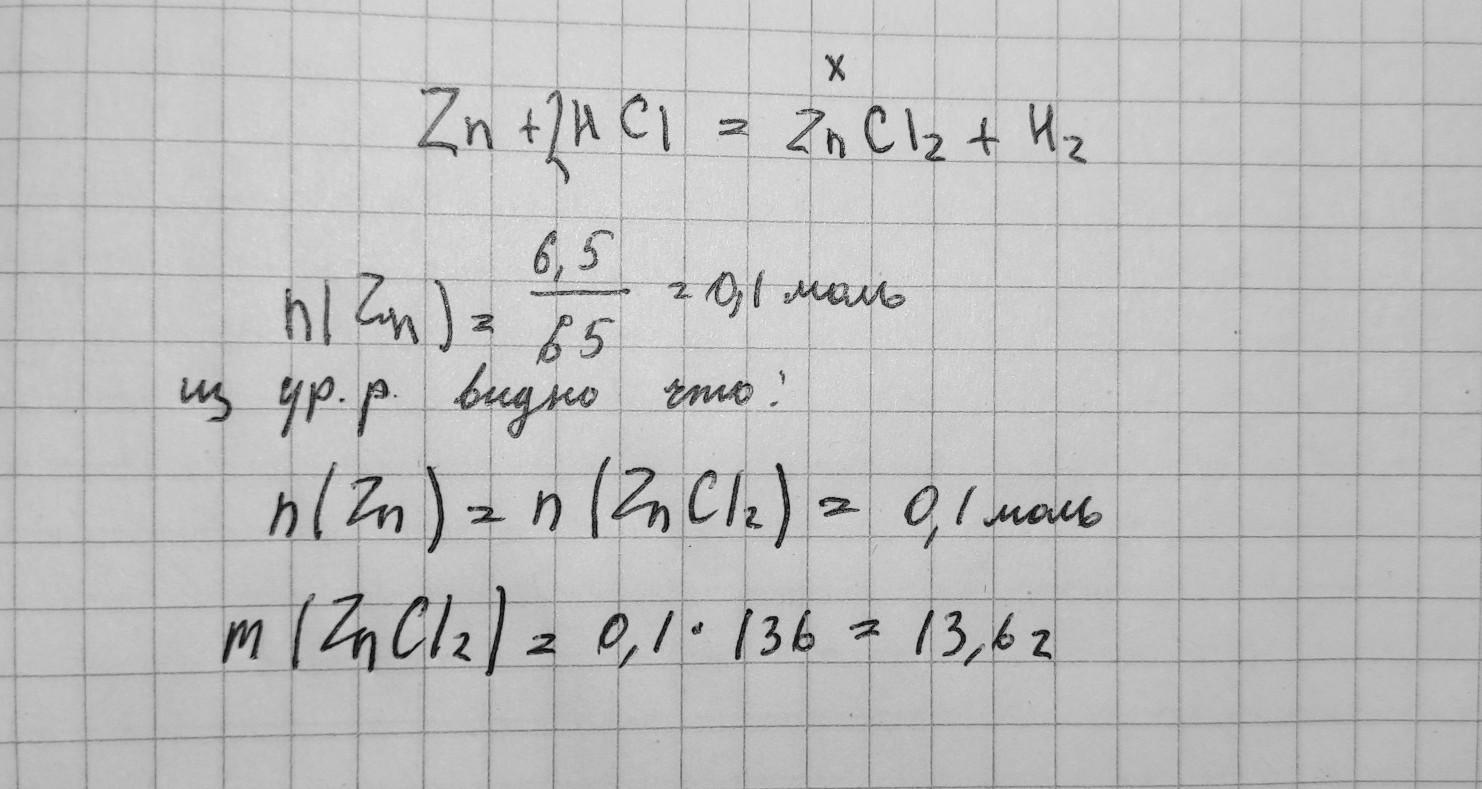 x
Zn + 2HCl = ZnCl₂ + H₂
n(Zn) = 6,5/65 = 0,1 моль
из ур. р. видно что:
n(Zn) = n(ZnCl₂) = 0,1 моль
m(ZnCl₂) = 0,1 · 136 = 13,6 г